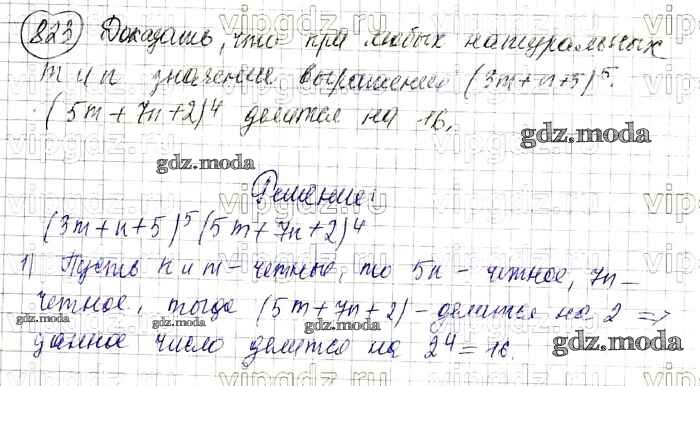 823 Доказать, что при любых натуральных
m и n значение выражения (3m+n+5)^5 ·
· (5m+7n+2)^4 делится на 16.
Решение:
(3m+n+5)^5 (5m+7n+2)^4
1) Пусть n и m - четные, то 5n - четное, 7n -
четное, тогда (5m+7n+2) - делится на 2 ⇒
данное число делится на 2^4 = 16.
gdz.moda
gdz.moda
gdz.moda
gdz.moda
gdz.moda
gdz.moda